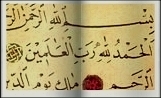 بسم الله الرحمن الر
الحمد لله رب العالمين
الرحيم ملك يوم الد